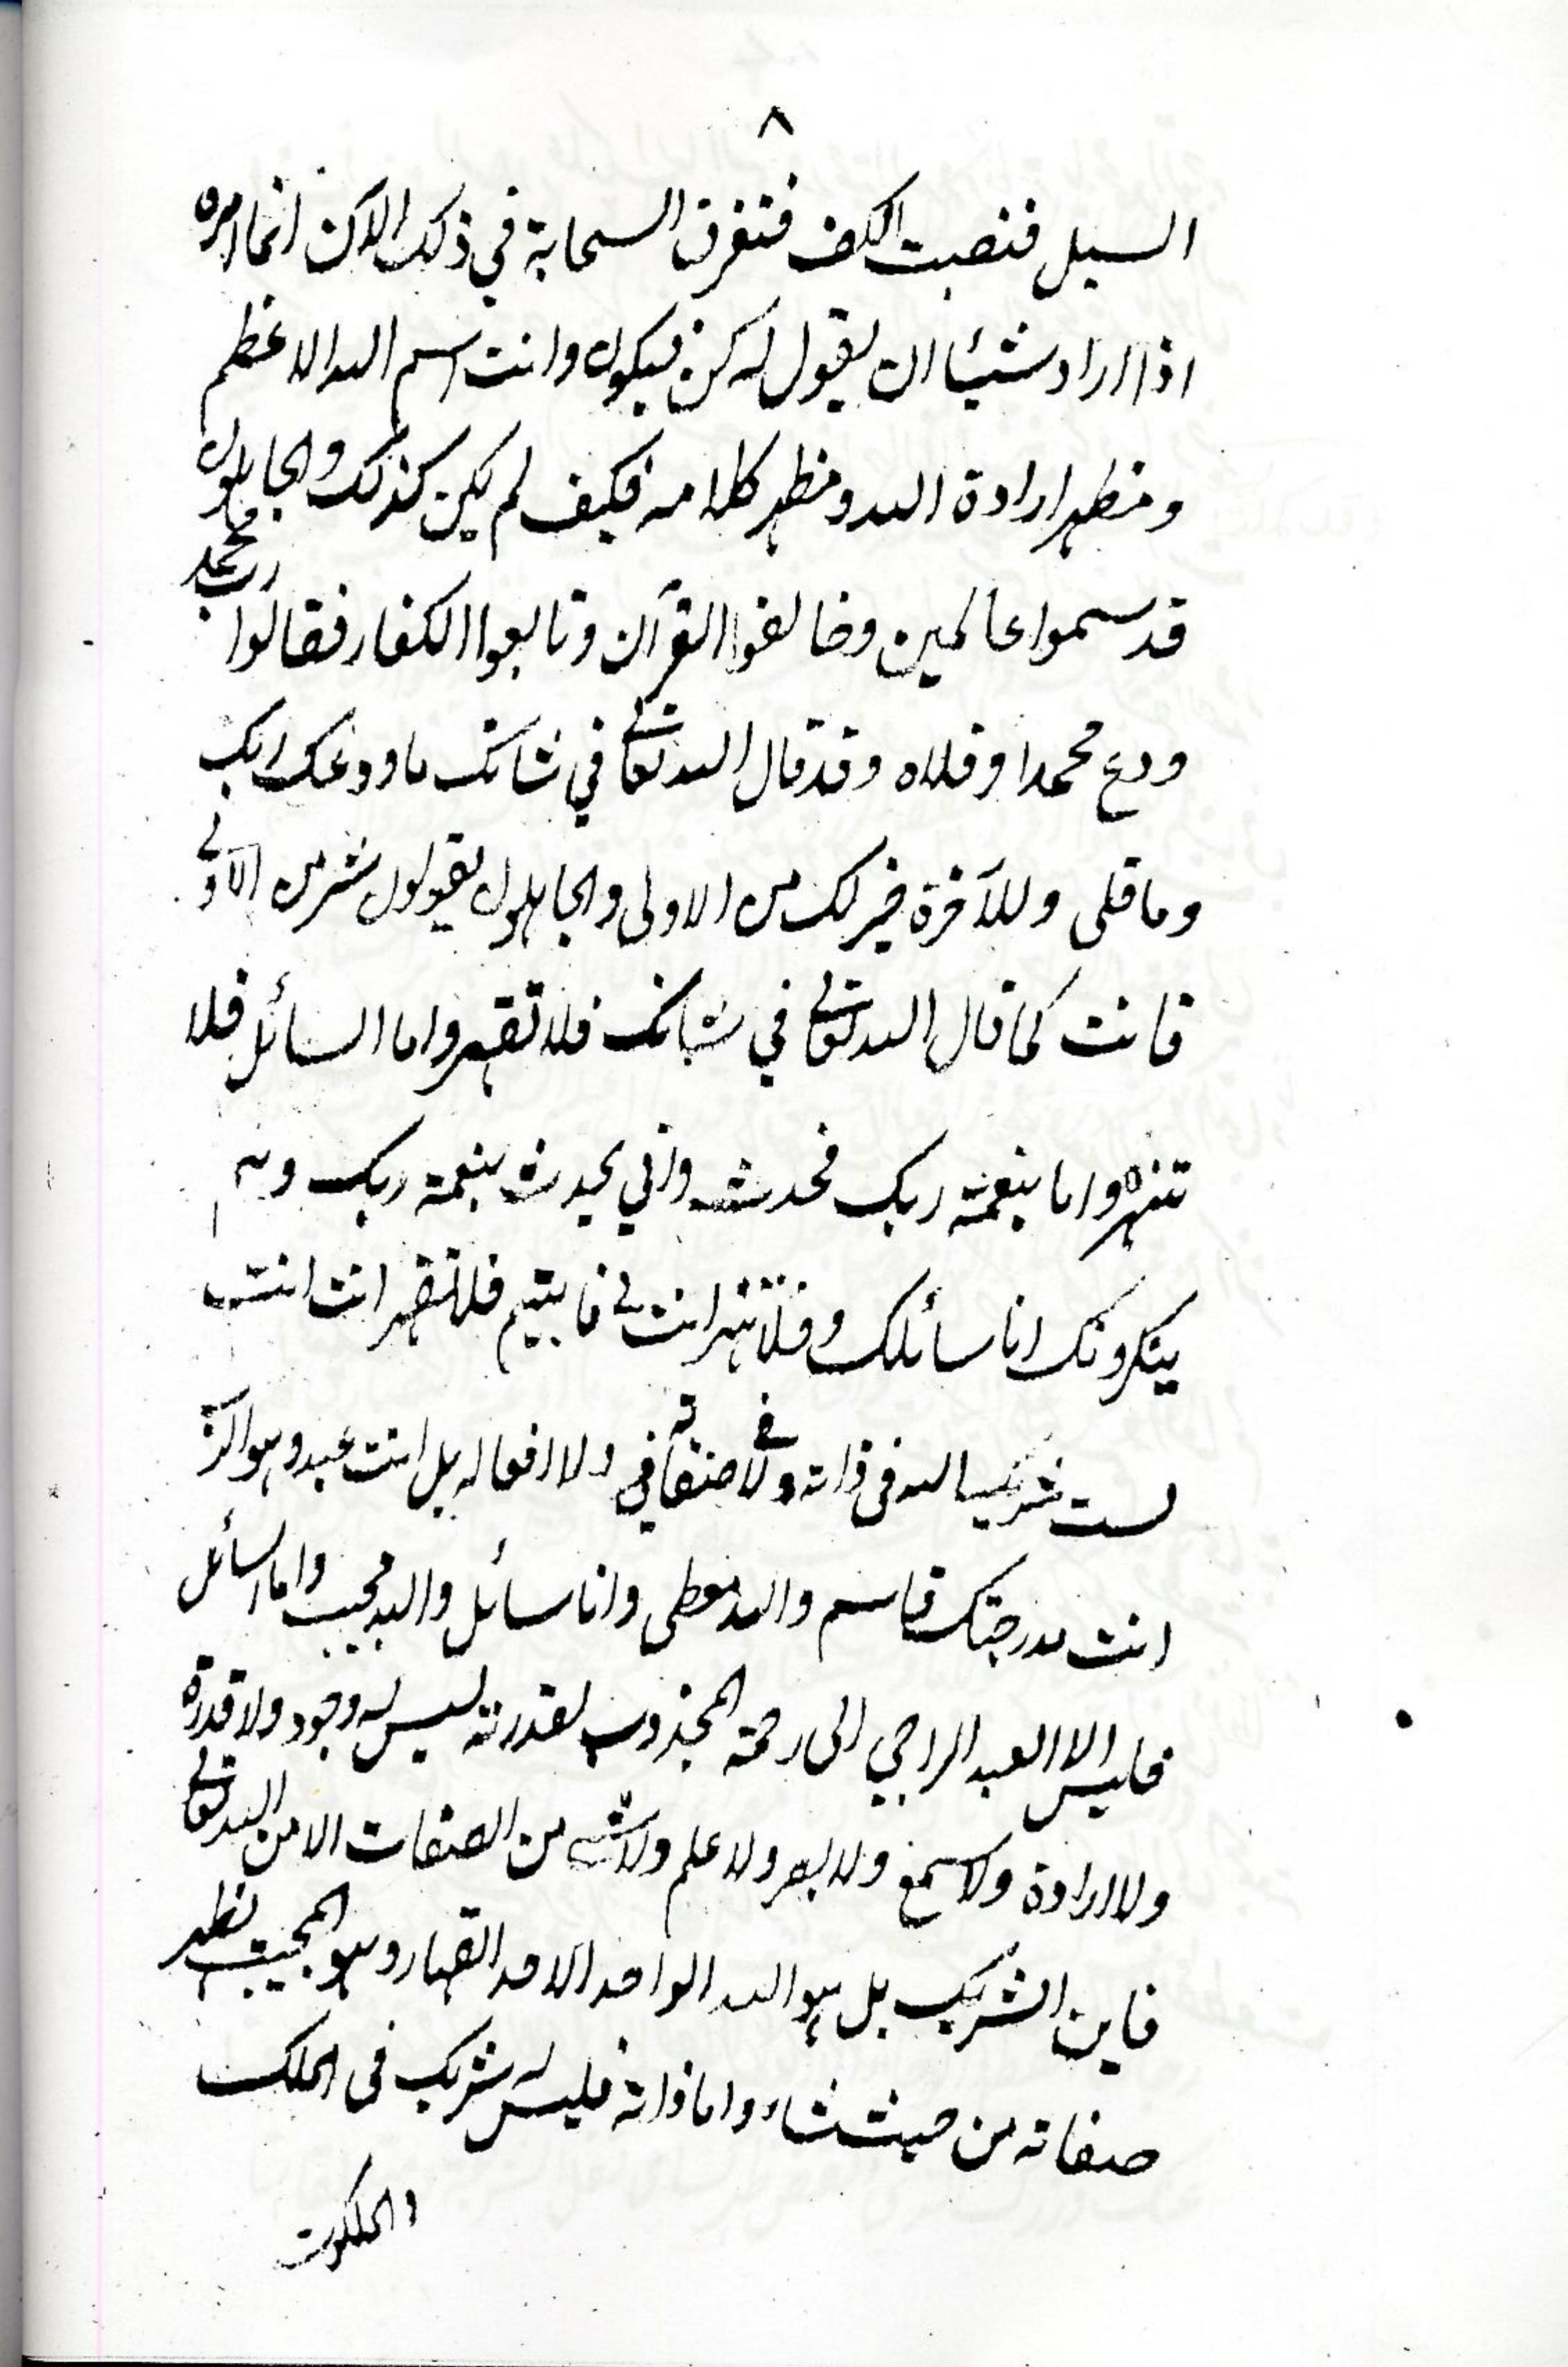 ٨
السيل فنصبت الكف فتفرق السحابة في ذلك الآن انما امره
اذا اراد شيئا ان يقول له كن فيكون وانت اسم الله الاعظم
ومظهر ارادة الله ومظهر كلامه فكيف لم يكن كذلك والجاهلون
قد سموا عالمين وخالفوا القرآن وتابعوا الكفار فقالوا رب محمد
ودع محمدا وقلاه وقد قال الله تعالى في شانك ما ودعك ربك
وما قلى وللآخرة خير لك من الاولى والجاهلون يقولون شر من الاولى
فانت كما قال الله تعالى في شانك فلا تقهر واما السائل فلا
تنهر واما بنعمة ربك فحدث واني يحدث بنعمة ربك وهم
ينكرونك انا سائلك وفلا تنهر انت لي فا يتيم فلا تقهر انت انت
لست شريك الله فى ذاته ولا في صفاته ولا في افعاله بل انت عبد وهو
انت بدرجتك قاسم والله معطى وانا سائل والله مجيب واما السائل
فليس الا العبد الراجي الى رحمة المجذوب لقدرته ليس له وجود ولا قدرة
ولا ارادة ولا سمع ولا بصر ولا علم ولا شئ من الصفات الا من الله تعالى
فاين الشريك بل هو الله الواحد الاحد القهار وهو المجيب نظهر
صفاته من حيث شاء واما ذاته فليس له شريك فى الملك
والملكوت